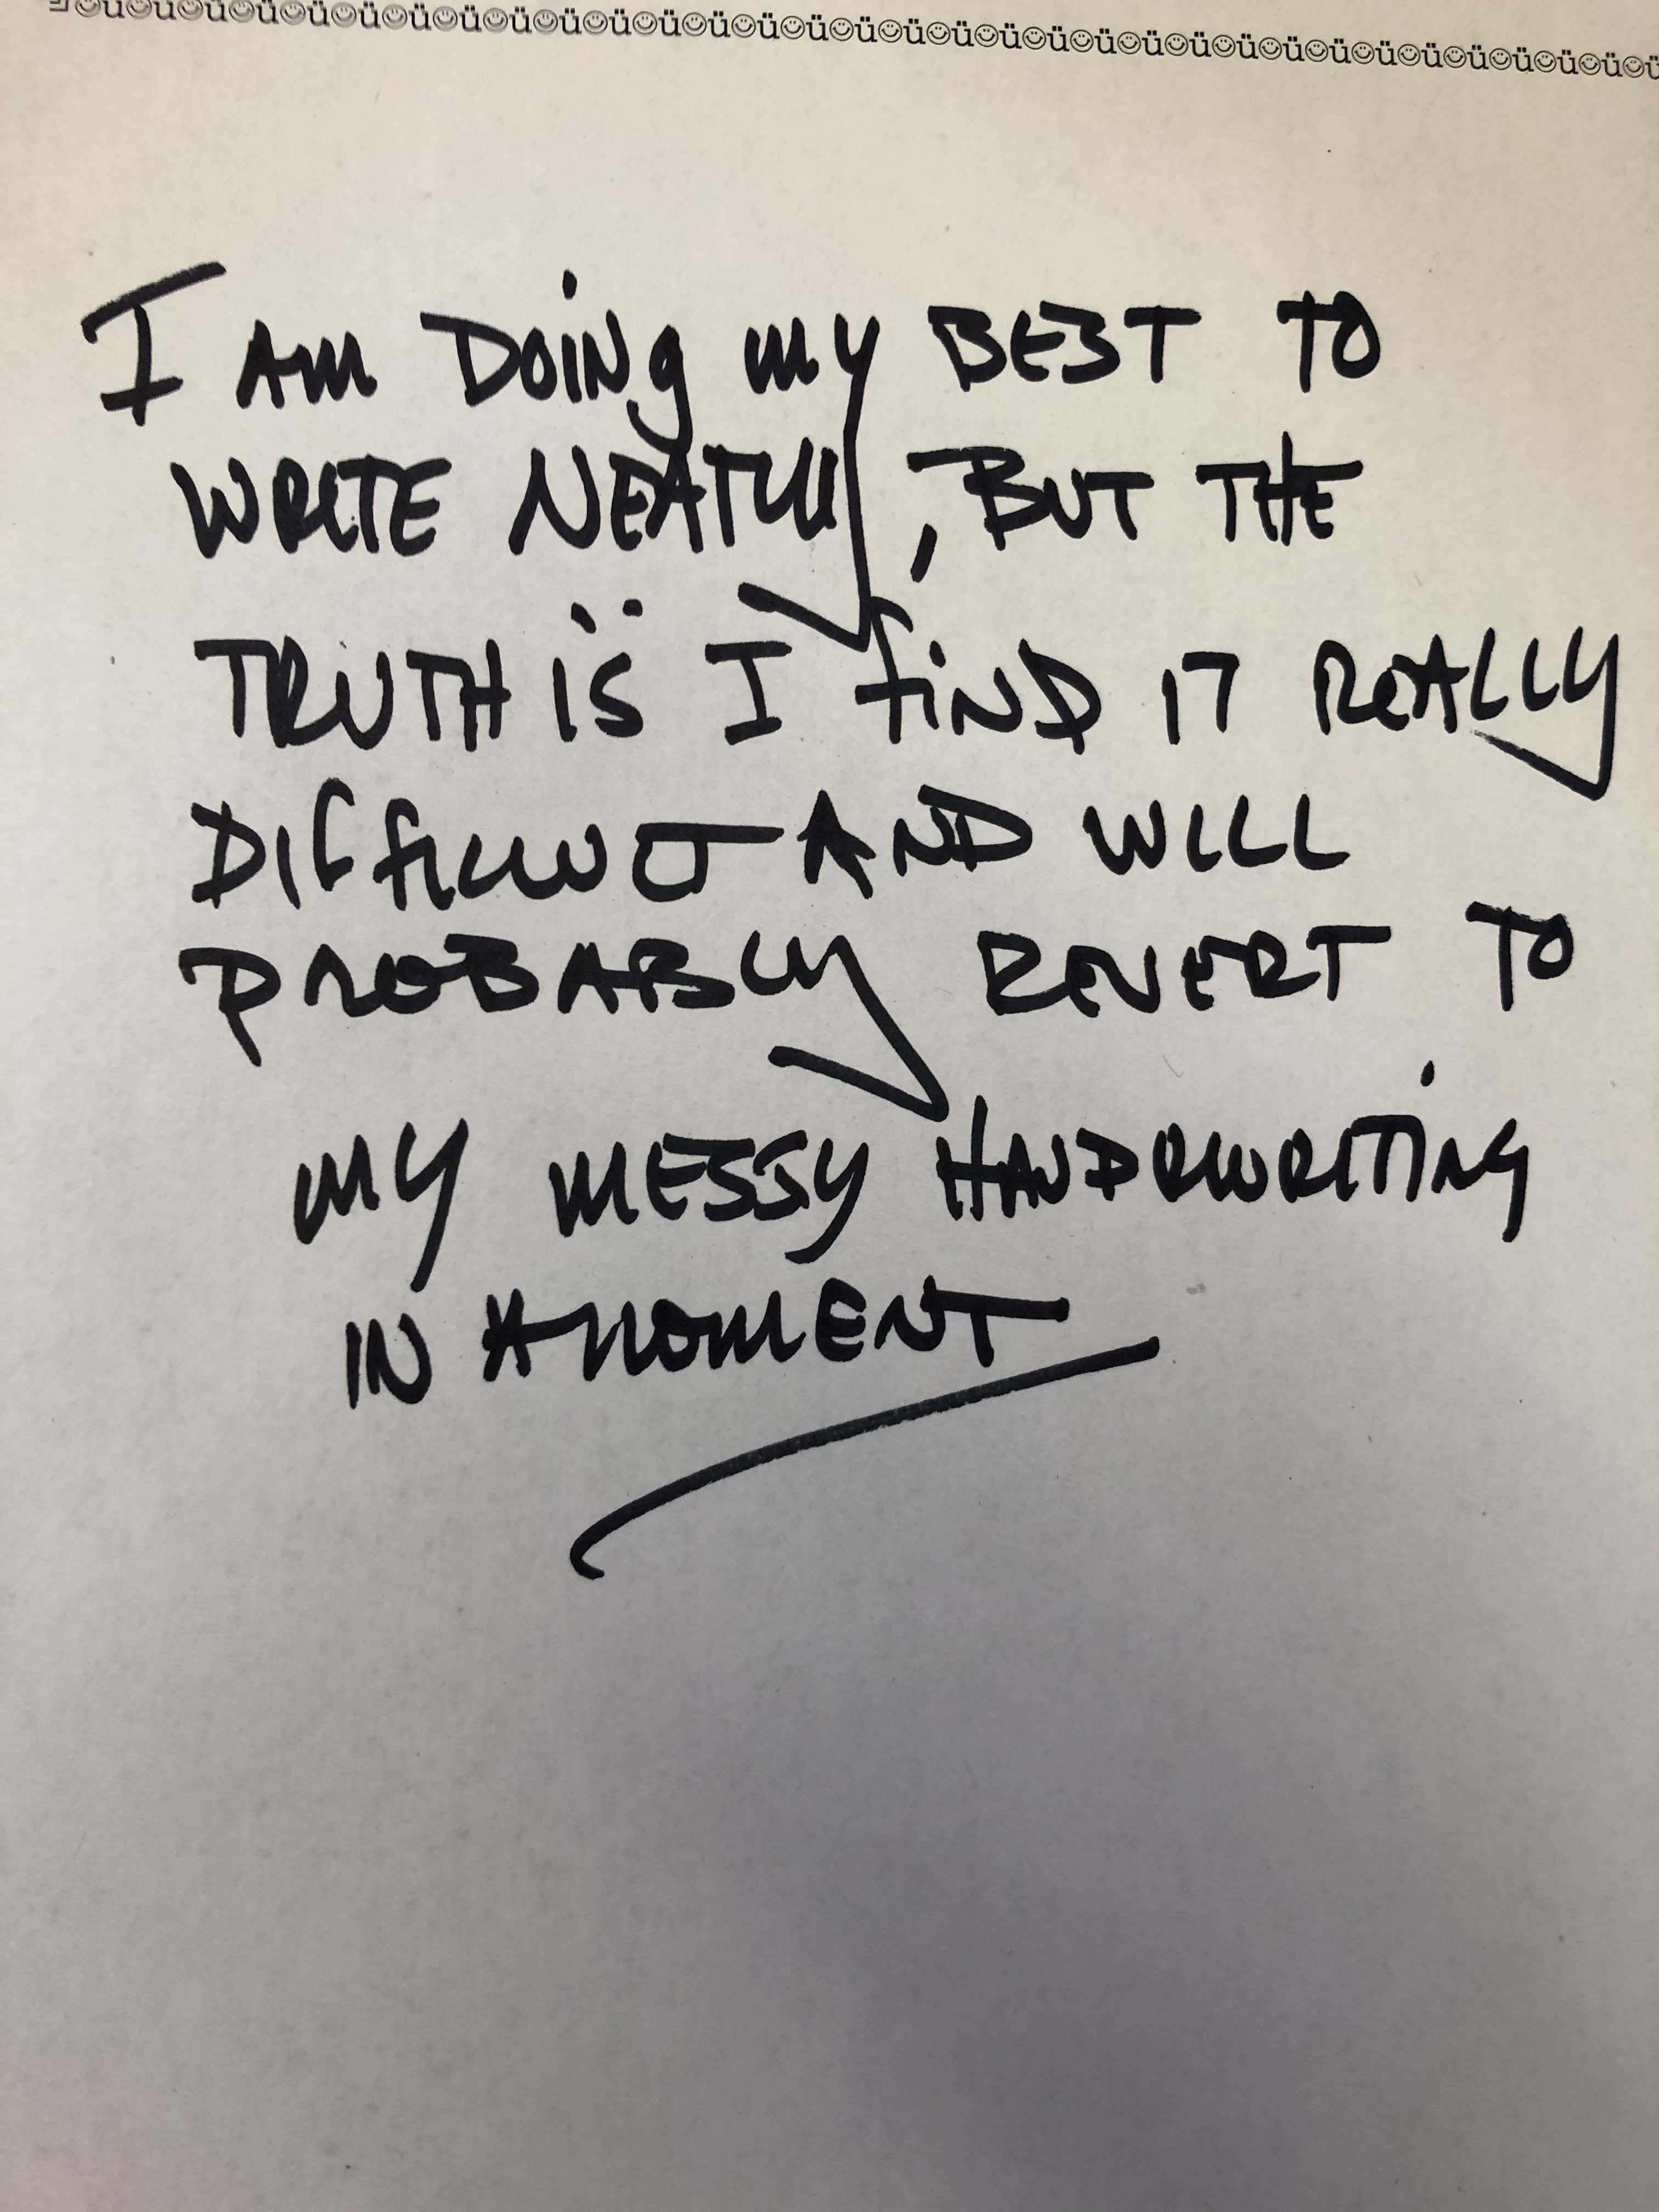 ü☺ü☺ü☺ü☺ü☺ü☺ü☺ü☺ü☺ü☺ü☺ü☺ü☺ü☺ü☺ü☺ü☺ü☺ü☺ü☺ü☺ü☺ü☺ü☺ü☺ü☺ü☺ü☺ü☺ü☺ü☺ü☺ü
I AM DOiNg my BEST TO
WRITE NEATLY, BUT THE
TRUTH iS I fiND IT REALLY
DIFFICULT AND WILL
PROBABLY REVERT TO
MY MESSY HANDRWRITiNG
IN A MOMENT